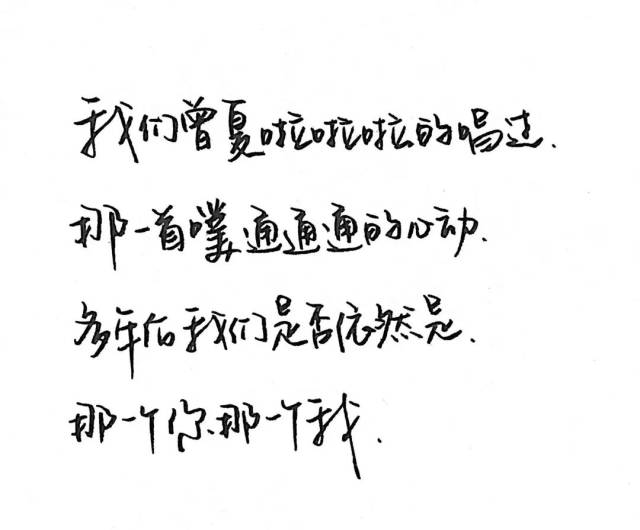 我们曾夏啦啦啦的唱过.
那一首噗通通通的心动.
多年后我们是否依然是.
那一个你.那一个我.